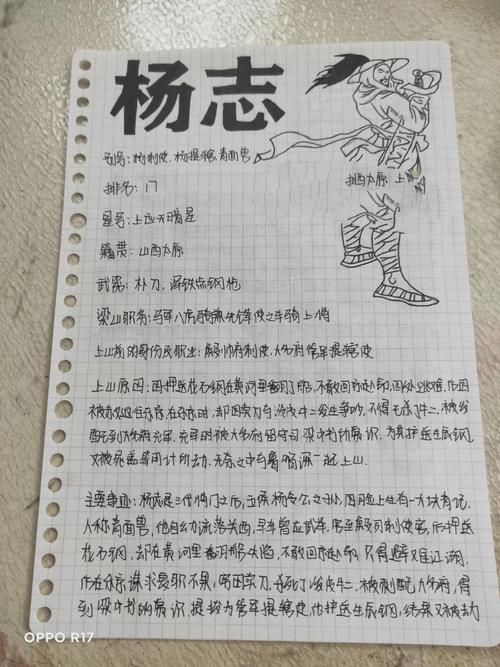 杨志
别号：杨制使、杨提辖、青面兽
排名：17
山西太原 上
星号：上应天暗星
籍贯：山西太原
武器：朴刀，浑铁点钢枪
梁山职务：马军八虎骑兼先锋使之军骑上将
上山前的身份及职业：殿帅府制使，大名府管军提辖使
上山原因：因押送花石纲在黄河里翻了船，不敢回京赴命，因此逃难，后因
被赦返回东京在京时，却因卖刀与泼皮牛二发生争吵，不得已杀了牛二，被发
配到大名府充军。充军时被大名府留守司梁中书所赏识，为其护送生辰纲，
又被晁盖等用计所劫。无奈之中与鲁智深一起上山.
主要事迹：杨志是三代将门之后，五侯杨令公之孙，因脸上生有一大块青记，
人称青面兽，他自幼流落关西，早年曾应武举，官至殿司制使官，后押送
花石纲，却在黄河里翻船失陷，不敢回京赴命，只得避难江湖，
后在东京谋求复职不果，穷困卖刀，杀死了泼皮牛二，被刺配大名府，得
到梁中书的赏识，提拔为管军提辖使，他护送生辰纲，结果又被劫
OPPO R17